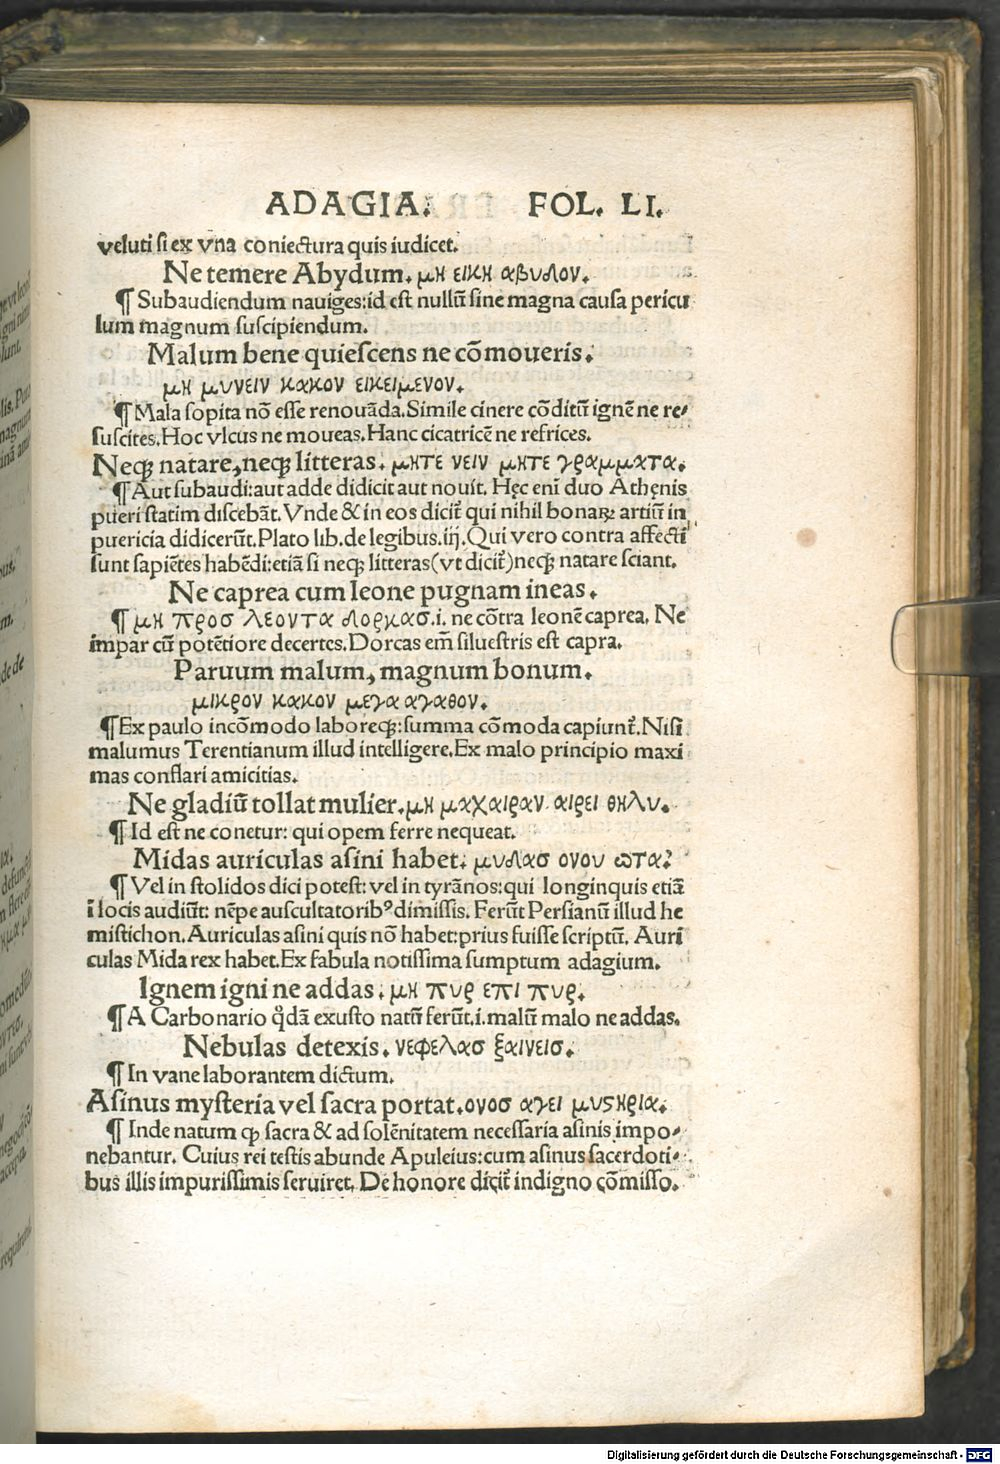 ADAGIA. FOL. LI.
veluti si ex vna coniectura quis iudicet.
Ne temere Abydum. μη εικη αβυδον.
¶ Subaudiendum nauiges: id est nullū sine magna causa pericu
lum magnum suscipiendum.
Malum bene quiescens ne cōmoueris.
μη μυνειν κακον εικειμενον.
¶ Mala sopita nō esse renouāda. Simile cinere cōditū ignē ne re⸗
suscites. Hoc vlcus ne moueas. Hanc cicatricē ne refrices.
Neqꝫ natare, neqꝫ litteras. μητε νειν μητε γραμματα.
¶ Aut subaudi: aut adde didicit aut nouit. Hęc eni duo Athęnis
pueri statim discebāt. Vnde & in eos dicit̄ qui nihil bonaꝝ artiū in
puericia didicerūt. Plato lib. de legibus. iij. Qui vero contra affecti
sunt sapiētes habēdi: etiā si neqꝫ litteras (vt dicit̄) neqꝫ natare sciant.
Ne caprea cum leone pugnam ineas.
¶ μη προσ λεοντα δορκασ. i. ne cōtra leonē caprea. Ne
impar cū potētiore decertes. Dorcas em̄ siluestris est capra.
Paruum malum, magnum bonum.
μικρον κακον μεγα αγαθον.
¶ Ex paulo incōmodo laboreqꝫ: summa cōmoda capiunt̄. Nisi
malumus Terentianum illud intelligere. Ex malo principio maxi
mas conflari amicitias.
Ne gladiū tollat mulier. μη μαχαιραν αιρει θηλυ.
¶ Id est ne conetur: qui opem ferre nequeat.
Midas auriculas asini habet. μυδασ ονου ωτα.
¶ Vel in stolidos dici potest: vel in tyrānos: qui longinquis etiā
ī locis audiūt: nēpe auscultatoribꝰ dimissis. Ferūt Persianū illud he
mistichon. Auriculas asini quis nō habet: prius fuisse scriptū. Auri
culas Mida rex habet. Ex fabula notissima sumptum adagium.
Ignem igni ne addas. μη πυρ επι πυρ.
¶ A Carbonario q̄dā exusto natū ferūt. i. malū malo ne addas.
Nebulas detexis. νεφελασ ξαινεισ.
¶ In vane laborantem dictum.
Asinus mysteria vel sacra portat. ονοσ αγει μυςηρια.
¶ Inde natum ꝙ sacra & ad solēnitatem necessaria asinis impo⸗
nebantur. Cuius rei testis abunde Apuleius: cum asinus sacerdoti⸗
bus illis impurissimis seruiret. De honore dicit̄ indigno cōmisso.
Digitalisierung gefördert durch die Deutsche Forschungsgemeinschaft - DFG